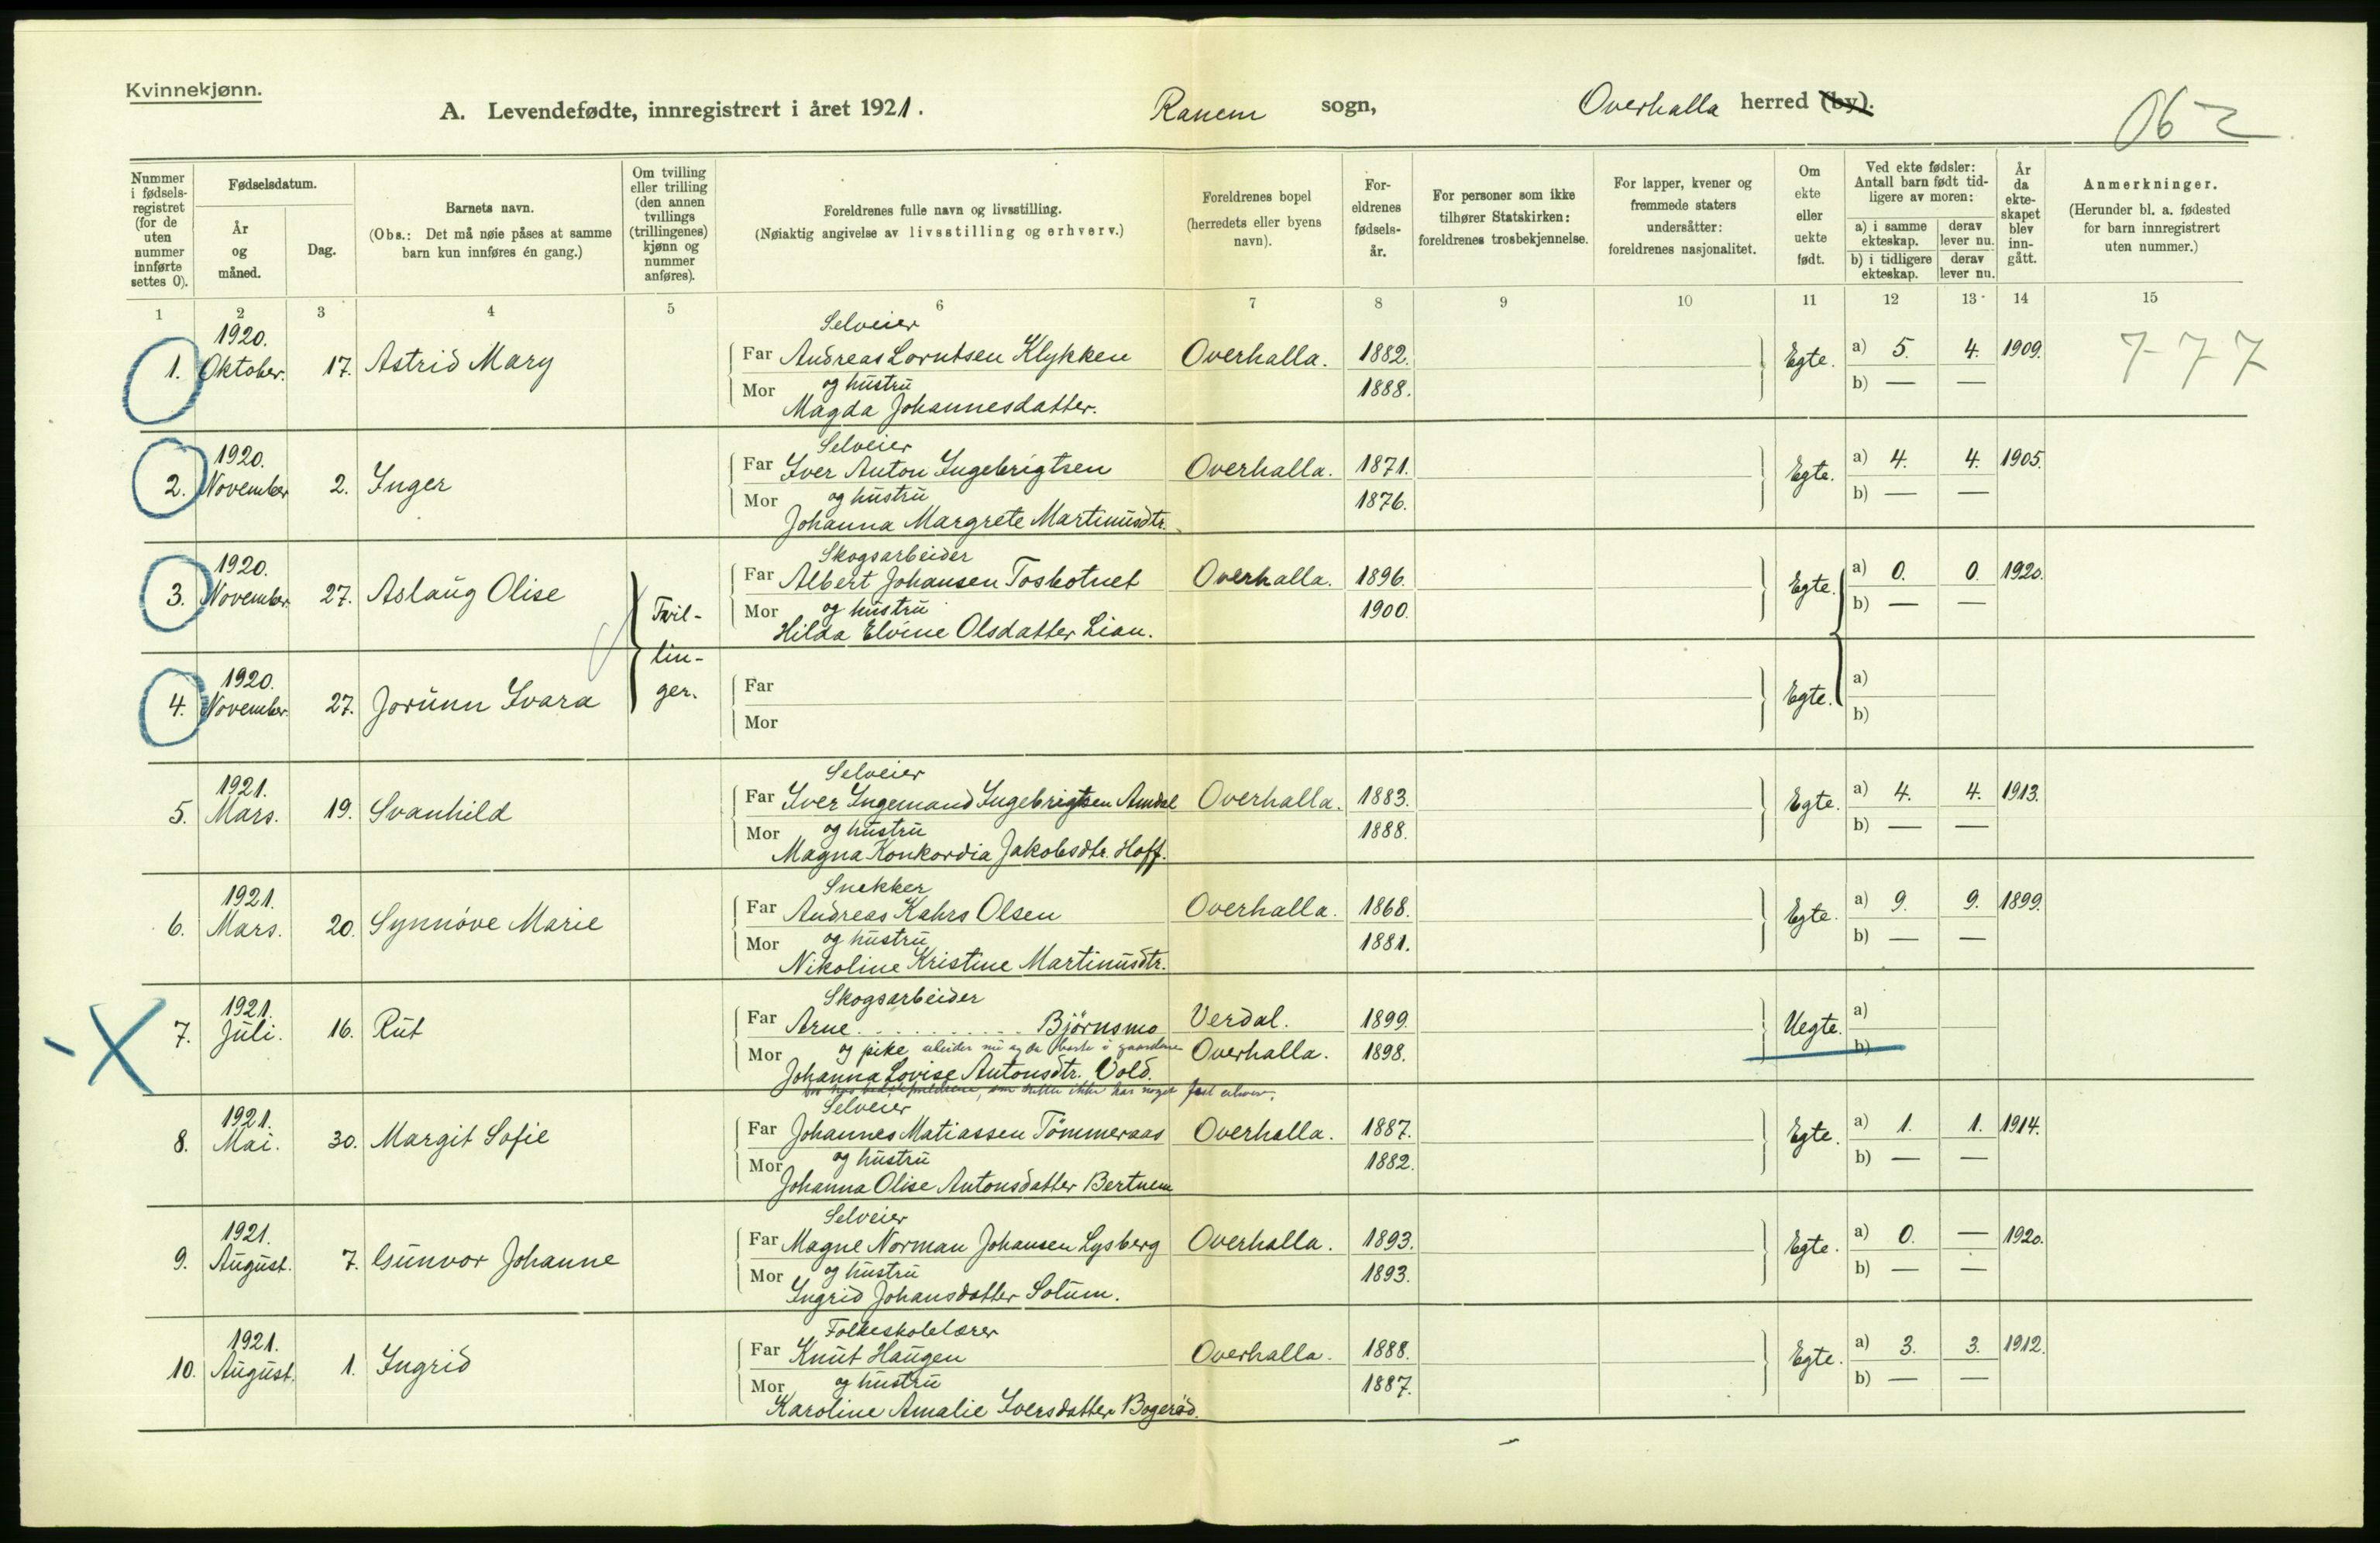 Kvinnekjønn.
A. Levendefødte, innregistrert i året 1921. Ranem sogn, Overhalla herred (by).
06
Nummer i fødsels-registret (for de uten nummer innførte settes 0).
Fødselsdatum.
År og måned.
Dag.
Barnets navn.
(Obs.: Det må nøie påses at samme barn kun innføres én gang.)
Om tvilling eller trilling (den annen tvillings (trillingenes) kjønn og nummer anføres).
Foreldrenes fulle navn og livsstilling.
(Nøiaktig angivelse av livsstilling og erhverv.)
Foreldrenes bopel (herredets eller byens navn).
For-eldrenes fødsels-år.
For personer som ikke tilhører Statskirken: foreldrenes trosbekjennelse.
For lapper, kvener og fremmede staters undersåtter: foreldrenes nasjonalitet.
Om ekte eller uekte født.
Ved ekte fødsler: Antall barn født tid-ligere av moren:
a) i samme ekteskap. derav lever nu.
b) i tidligere ekteskap. derav lever nu.
År da ekte-skapet blev inn-gått.
Anmerkninger.
(Herunder bl. a. fødested for barn innregistrert uten nummer.)
1 2 3 4 5 6 7 8 9 10 11 12 13 14 15
1920. Selveier
1. Oktober. 17. Astrid Mary Far Andreas Lorntsen Klykken Overhalla. 1882. Egte. a) 5. 4. 1909. 7-7-7
Mor og hustru 1888. b) — —
Magda Johannesdatter.
1920. Selveier
2. November 2. Inger Far Iver Anton Ingebrigtsen Overhalla. 1871. Egte. a) 4. 4. 1905.
Mor og hustru 1876. b) — —
Johanna Margrete Martinusdtr.
1920. Skogsarbeider
3. November. 27. Aslaug Olise Far Albert Johansen Tosbotnet Overhalla. 1896. Egte. a) 0. 0. 1920.
Tvil- Mor og hustru 1900. b) — —
Hilda Elvine Olsdatter Lian.
lin-
1920.
4. November. 27. Jorunn Svara ger. Far Egte. a)
Mor b)
1921. Selveier
5. Mars. 19. Svanhild Far Iver Ingemand Ingebrigtsen Amdal Overhalla. 1883. Egte. a) 4. 4. 1913.
Mor og hustru 1888. b) — —
Magna Konkordia Jakobsdtr. Hoff.
1921. Snekker
6. Mars. 20. Synnøve Marie Far Andreas Kahrs Olsen Overhalla. 1868. Egte. a) 9. 9. 1899.
Mor og hustru 1881. b) — —
Nikoline Kristine Martinusdtr.
1921. Skogsarbeider
7. Juli. 16. Rut Far Arne . . . . . . . . . . Bjørnsmo Verdal. 1899. Uegte. a)
Mor og pike arbeider nu og da borte i gaardene Overhalla. 1898. b)
Johanna Lovise Antonsdtr. Vold.
1921. Selveier
8. Mai. 30. Margit Sofie Far Johannes Matiassen Tømmeraas Overhalla. 1887. Egte. a) 1. 1. 1914.
Mor og hustru 1882. b) — —
Johanna Olise Antonsdatter Bertnem
1921. Selveier
9. August. 7. Gunvor Johanne Far Magne Norman Johansen Lysberg Overhalla. 1893. Egte. a) 0. — 1920.
Mor og hustru 1893. b) — —
Ingrid Johansdatter Solum.
1921. Folkeskolelærer
10. August. 1. Ingrid Far Knut Haugen Overhalla. 1888. Egte. a) 3. 3. 1912.
Mor og hustru 1887. b) — —
Karoline Amalie Iversdatter Bogerød.